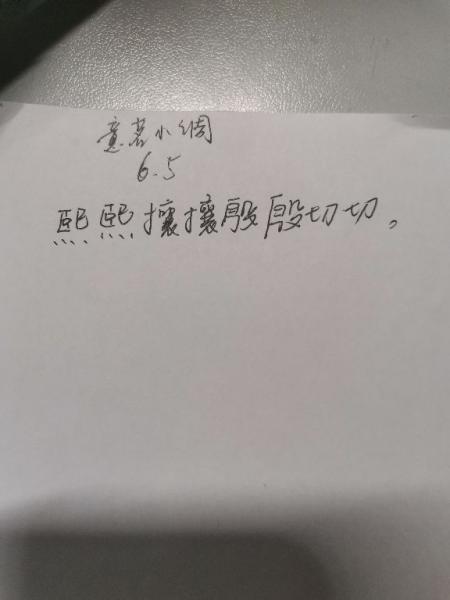 意茗小绸
6.5
熙熙攘攘殷殷切切。